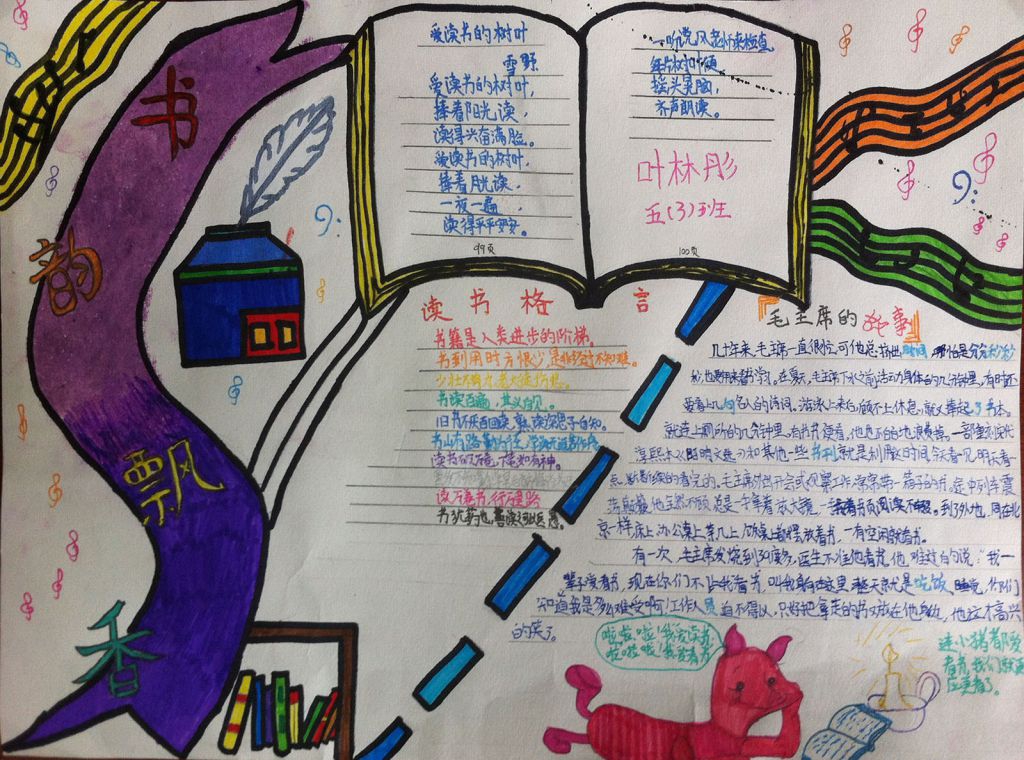 书
韵
飘
香
爱读书的树叶
雪野
爱读书的树叶,
捧着阳光读,
读得兴奋满脸。
爱读书的树叶,
捧着月光读,
一夜一遍,
读得平平安安。
99页
一听说风老师来检查
每片树叶便
摇头晃脑,
齐声朗读。
叶林彤
五(3)班
100页
读书格言
书籍是人类进步的阶梯。
书到用时方恨少,是非经过不知难。
书读百遍,其义自见。
旧书不厌百回读,熟读深思子自知。
书山有路勤为径,学海无涯苦作舟
读书破万卷,下笔如有神。
读万卷书,行万里路
书犹药也,善读之可以医愚。
毛主席的故事
几十年来,毛主席一直很忙,可他总
时间,哪怕是分分秒秒
也要用来看书学习。在夏天,毛主席下水之前活动身体的几分钟里,有时还
要看上几句名人的诗词。游泳上来后,顾不上休息,就又捧起了书本。
就连上厕所的几分钟里,
他也不白白地浪费掉。一部重刻宋代
和其他一些书刊,就是利用这时间,今天看一点,明天看一
点,断断续续的看完的。毛主席外出开会或视察工作,常常带一箱子的书。途中列车震
荡颠簸,他全然不顾,总是一手拿着放大镜,一
阅读不辍。到了外地,同在北
京一样,床上、办公桌上、茶几上、饭桌上都摆放着书,一有空闲就看书。
有一次,毛主席发烧到39度多,医生不准他看书。他难过的说:“我一
辈子爱看书,现在你们不让我看书,叫我躺在这里,整天就是吃饭、睡觉,你们
知道我是多么难受啊!工作人员迫不得以,只好把拿走的书又放在他身边,他这才高兴
的笑了。
啦啦啦!我爱读书
啦啦啦!我爱看书
连小猪都爱
看书,我们就更
应更看了。